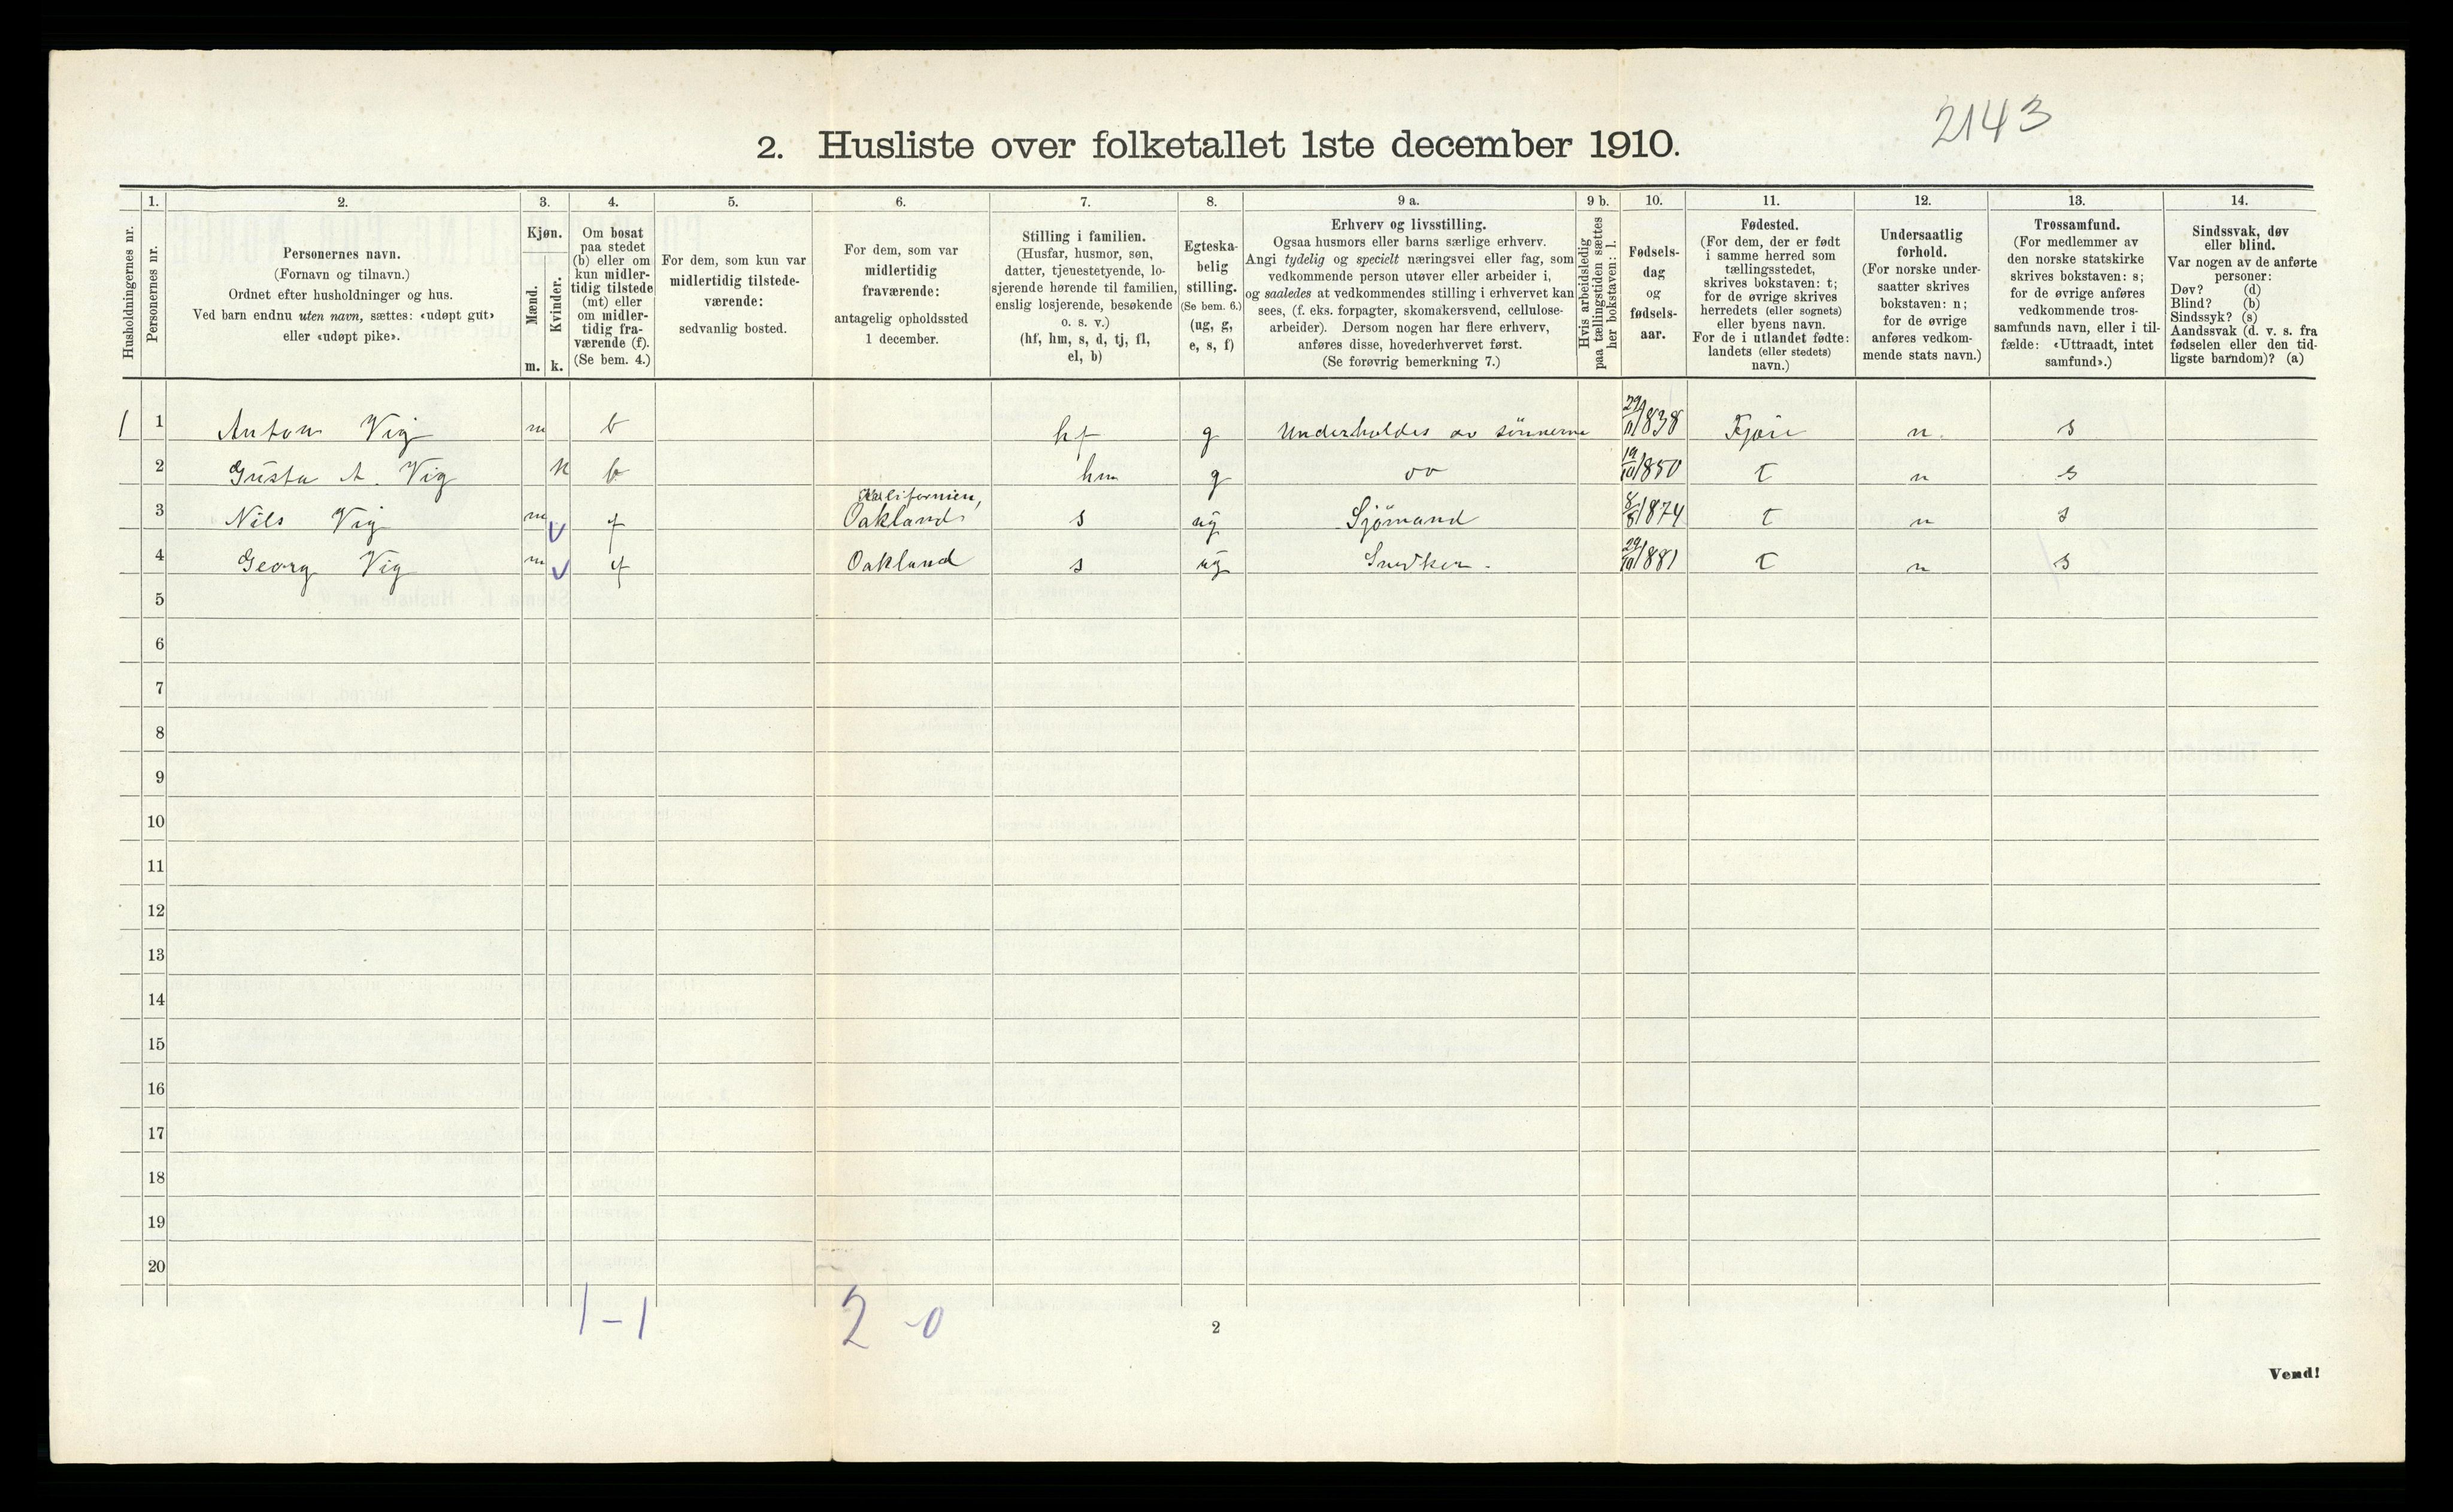 2143
2. Husliste over folketallet 1ste december 1910.
Husholdningernes nr.
1.
Personernes nr.
2.
Personernes navn.
(Fornavn og tilnavn.)
Ordnet efter husholdninger og hus.
Ved barn endnu uten navn, sættes: «udøpt gut»
eller «udøpt pike».
3.
Kjøn.
Mænd.
Kvinder.
m. k.
4.
Om bosat
paa stedet
(b) eller om
kun midler-
tidig tilstede
(mt) eller
om midler-
tidig fra-
værende (f).
(Se bem. 4.)
5.
For dem, som kun var
midlertidig tilstede-
værende:
sedvanlig bosted.
6.
For dem, som var
midlertidig
fraværende:
antagelig opholdssted
1 december.
7.
Stilling i familien.
(Husfar, husmor, søn,
datter, tjenestetyende, lo-
sjerende hørende til familien,
enslig losjerende, besøkende
o. s. v.)
(hf, hm, s, d, tj, fl,
el, b)
8.
Egteska-
belig
stilling.
(Se bem. 6.)
(ug, g,
e, s, f)
9 a.
Erhverv og livsstilling.
Ogsaa husmors eller barns særlige erhverv.
Angi tydelig og specielt næringsvei eller fag, som
vedkommende person utøver eller arbeider i,
og saaledes at vedkommendes stilling i erhvervet kan
sees, (f. eks. forpagter, skomakersvend, cellulose-
arbeider). Dersom nogen har flere erhverv,
anføres disse, hovederhvervet først.
(Se forøvrig bemerkning 7.)
9 b.
Hvis arbeidsledig
paa tællingstiden sættes
her bokstaven: l.
10.
Fødsels-
dag
og
fødsels-
aar.
11.
Fødested.
(For dem, der er født
i samme herred som
tællingsstedet,
skrives bokstaven: t;
for de øvrige skrives
herredets (eller sognets)
eller byens navn.
For de i utlandet fødte:
landets (eller stedets)
navn.)
12.
Undersaatlig
forhold.
(For norske under-
saatter skrives
bokstaven: n;
for de øvrige
anføres vedkom-
mende stats navn.)
13.
Trossamfund.
(For medlemmer av
den norske statskirke
skrives bokstaven: s;
for de øvrige anføres
vedkommende tros-
samfunds navn, eller i til-
fælde: «Uttraadt, intet
samfund».)
14.
Sindssvak, døv
eller blind.
Var nogen av de anførte
personer:
Døv? (d)
Blind? (b)
Sindssyk? (s)
Aandssvak (d. v. s. fra
fødselen eller den tid-
ligste barndom)? (a)
1 1 Anton Vig m b hf g Underholdes av sönnerne 29/11 1838 n. s
2 Gusta A. Vig k b hm g 19/10 1850 t n s
Kalifornien,
3 Nils Vig m f Oakland s ug Sjömand 8/8 1874 t n s
4 Georg Vig m f Oakland s ug Snedker. 29/10 1881 t n s
5
6
7
8
9
10
11
12
13
14
15
16
17
18
19
20
1 - 1 2 - 0
2
Vend!